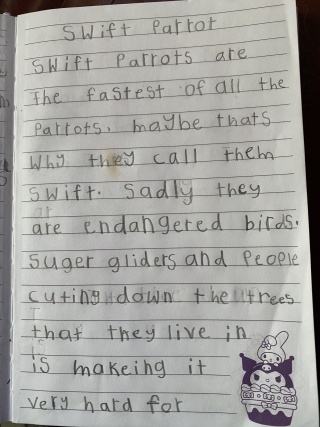 Swift Parrot
Swift Parrots are
the fastest of all the
Parrots. maybe thats
Why they call them
Swift. Sadly they
are endangered birds.
Suger gliders and People
cuting down the trees
that they live in
is makeing it
very hard for